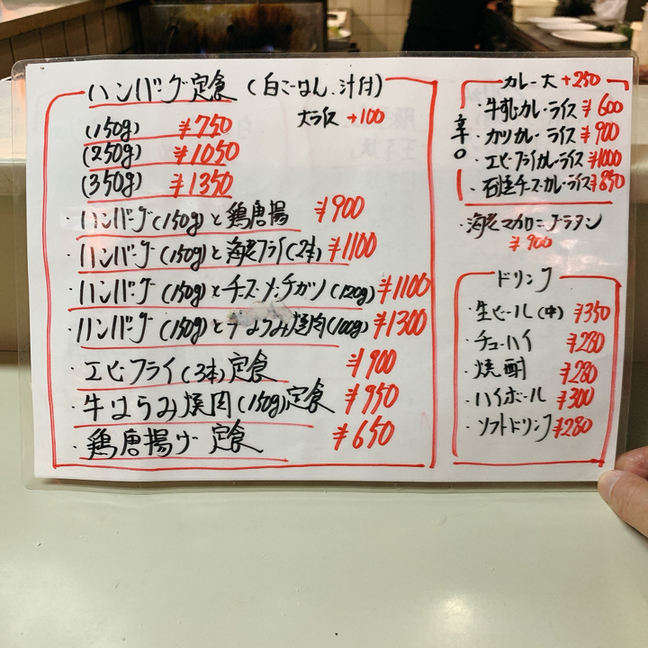 ハンバーグ定食 (白ごはん、汁付)
大ライス +100
(150g) ¥750
(250g) ¥1050
(350g) ¥1350
・ハンバーグ(150g)と鶏唐揚 ¥900
・ハンバーグ(150g)と海老フライ(2本) ¥1100
・ハンバーグ(150g)とチーズメンチカツ(120g) ¥1100
・ハンバーグ(150g)と牛はらみ焼肉(100g) ¥1300
・エビフライ(3本)定食 ¥900
・牛はらみ焼肉(150g)定食 ¥950
・鶏唐揚げ定食 ¥650
カレー大 +250
辛口
・牛乳カレーライス ¥600
・カツカレーライス ¥900
・エビフライカレーライス ¥1000
・石焼チーズカレーライス ¥850
・海老マカロニグラタン
¥900
ドリンク
・生ビール(中) ¥350
・チューハイ ¥280
・焼酎 ¥280
・ハイボール ¥300
・ソフトドリンク ¥280